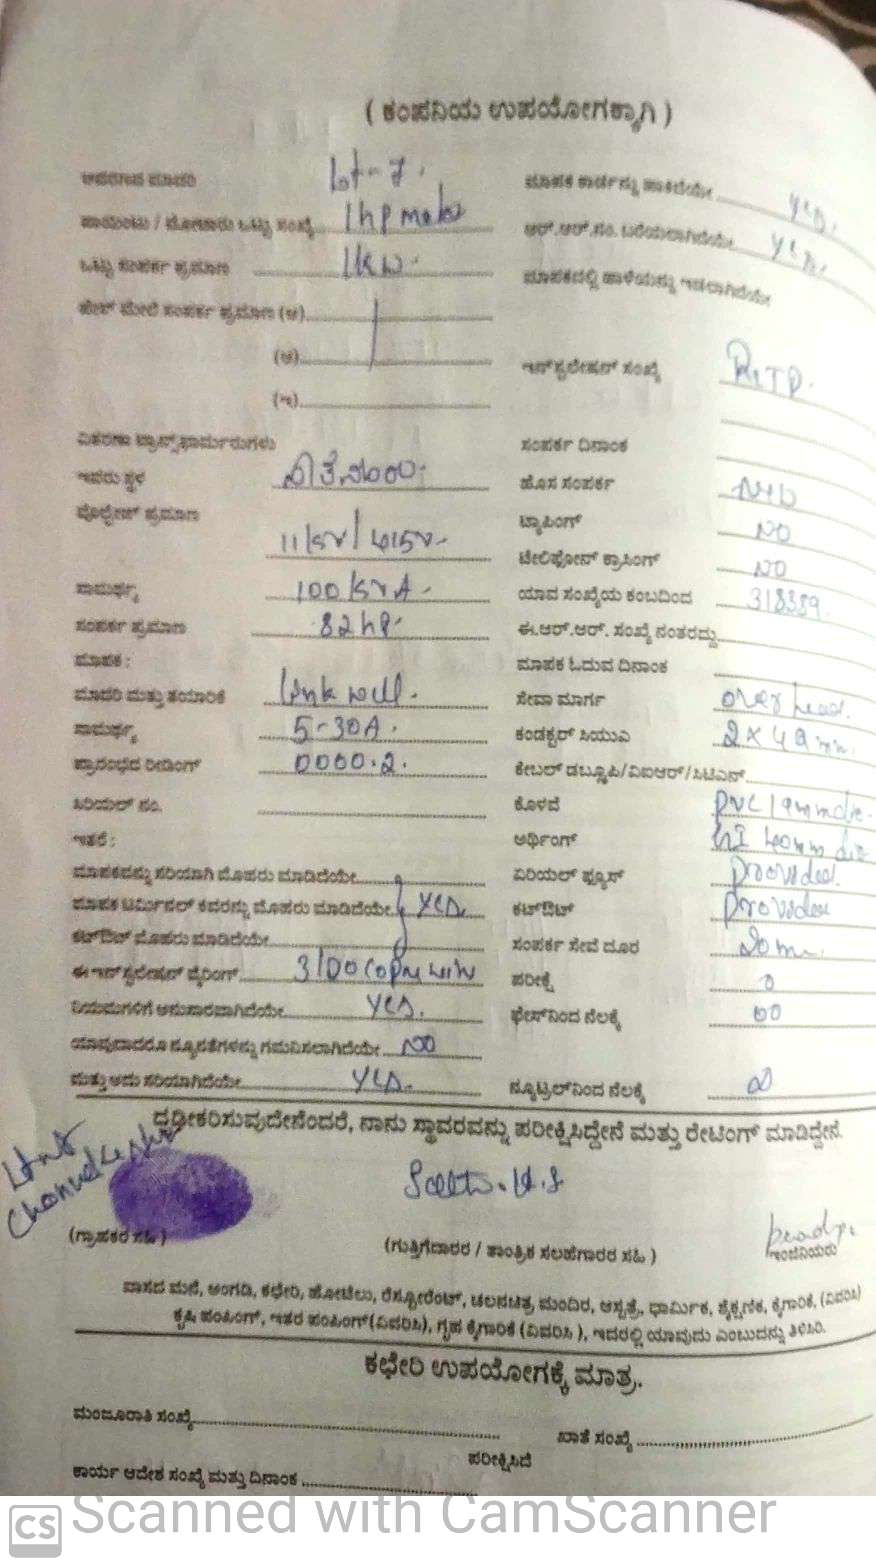 ( ಕಂಪನಿಯ ಉಪಯೋಗಕ್ಕಾಗಿ )
lot-7.
ಮಾಪಕ ಕಾರ್ಡನ್ನು ಹಾಕಿದೆಯೇ yes.
ಪಾಯಿಂಟು / ಮೋಟಾರು ಒಟ್ಟು ಸಂಖ್ಯೆ 1hp motor
ಆರ್.ಆರ್.ಸಂ. ಬರೆಯಲಾಗಿದೆಯೇ yes.
ಒಟ್ಟು ಸಂಪರ್ಕ ಪ್ರಮಾಣ 1kw.
ಮಾಪಕದಲ್ಲಿ ಹಾಳೆಯನ್ನು ಇಡಲಾಗಿದೆಯೇ
ಹೇಟ್ ಮೇಲೆ ಸಂಪರ್ಕ ಪ್ರಮಾಣ (ಅ)
(ಆ)
ಇನ್‌ಸ್ಟಲೇಷನ್ ಸಂಖ್ಯೆ
(ಇ)
ವಿತರಣಾ ಟ್ರಾನ್ಸ್‌ಫಾರ್ಮರುಗಳು
ಸಂಪರ್ಕ ದಿನಾಂಕ
ಇದರು ಸ್ಥಳ
ಹೊಸ ಸಂಪರ್ಕ
ವೋಲ್ಟೇಜ್ ಪ್ರಮಾಣ 11kv/415v
ಟ್ಯಾಪಿಂಗ್ NO
ಟೇಲಿಫೋನ್ ಕ್ರಾಸಿಂಗ್ NO
ಸಾಮರ್ಥ್ಯ 100kvA
ಯಾವ ಸಂಖ್ಯೆಯ ಕಂಬದಿಂದ 318389.
ಸಂಪರ್ಕ ಪ್ರಮಾಣ 82hp
ಈ.ಆರ್.ಆರ್. ಸಂಖ್ಯೆ ನಂತರದ್ದು
ಮಾಪಕ :
ಮಾಪಕ ಓದುವ ದಿನಾಂಕ
ಮಾದರಿ ಮತ್ತು ತಯಾರಿಕೆ link well.
ಸೇವಾ ಮಾರ್ಗ over head.
ಸಾಮರ್ಥ್ಯ 5-30A.
ಕಂಡಕ್ಟರ್ ಸಿಯುಎ
ಪ್ರಾರಂಭದ ರೀಡಿಂಗ್ 0000.2.
ಕೇಬಲ್ ಡಬ್ಲ್ಯೂಪಿ/ವಿಐಆರ್/ಸಿಟಿಎಸ್
ಸಿರಿಯಲ್ ನಂ.
ಕೊಳವೆ PVC 19mm die.
ಇತರೆ :
ಅರ್ಥಿಂಗ್ GI 40mm die
ಮಾಪಕವನ್ನು ಸರಿಯಾಗಿ ಮೊಹರು ಮಾಡಿದೆಯೇ
ಏರಿಯಲ್ ಫ್ಯೂಸ್ Provided.
ಮಾಪಕ ಟರ್ಮಿನಲ್ ಕವರನ್ನು ಮೊಹರು ಮಾಡಿದೆಯೇ yes.
ಕಟ್‌ಔಟ್ Provided
ಕಟ್‌ಔಟ್ ಮೊಹರು ಮಾಡಿದೆಯೇ
ಸಂಪರ್ಕ ಸೇವೆ ದೂರ 20m.
ಈ ಇನ್‌ಸ್ಟಲೇಷನ್ ವೈರಿಂಗ್
ಪರೀಕ್ಷೆ
ನಿಯಮಗಳಿಗೆ ಅನುಸಾರವಾಗಿದೆಯೇ yes.
ಫೇಸ್‌ನಿಂದ ನೆಲಕ್ಕೆ
ಯಾವುದಾದರೂ ನ್ಯೂನತೆಗಳನ್ನು ಗಮನಿಸಲಾಗಿದೆಯೇ NO
ಮತ್ತು ಅದು ಸರಿಯಾಗಿದೆಯೇ yes.
ನ್ಯೂಟ್ರಲ್‌ನಿಂದ ನೆಲಕ್ಕೆ
ದೃಢೀಕರಿಸುವುದೇನೆಂದರೆ, ನಾನು ಸ್ಥಾವರವನ್ನು ಪರೀಕ್ಷಿಸಿದ್ದೇನೆ ಮತ್ತು ರೇಟಿಂಗ್ ಮಾಡಿದ್ದೇನೆ.
(ಗ್ರಾಹಕರ ಸಹಿ )
(ಗುತ್ತಿಗೆದಾರರ / ತಾಂತ್ರಿಕ ಸಲಹೆಗಾರರ ಸಹಿ )
ಇಂಜಿನಿಯರು
ವಾಸದ ಮನೆ, ಅಂಗಡಿ, ಕಛೇರಿ, ಹೋಟೆಲು, ರೆಸ್ಟೋರೆಂಟ್, ಚಲನಚಿತ್ರ ಮಂದಿರ, ಆಸ್ಪತ್ರೆ, ಧಾರ್ಮಿಕ, ಶೈಕ್ಷಣಿಕ, ಕೈಗಾರಿಕೆ, (ವಿವರಿಸಿ)
ಕೃಷಿ ಪಂಪಿಂಗ್, ಇತರ ಪಂಪಿಂಗ್ (ವಿವರಿಸಿ), ಗೃಹ ಕೈಗಾರಿಕೆ (ವಿವರಿಸಿ ), ಇದರಲ್ಲಿ ಯಾವುದು ಎಂಬುದನ್ನು ತಿಳಿಸಿರಿ.
ಕಛೇರಿ ಉಪಯೋಗಕ್ಕೆ ಮಾತ್ರ.
ಮಂಜೂರಾತಿ ಸಂಖ್ಯೆ
ಖಾತೆ ಸಂಖ್ಯೆ
ಪರೀಕ್ಷಿಸಿದೆ
ಕಾರ್ಯ ಆದೇಶ ಸಂಖ್ಯೆ ಮತ್ತು ದಿನಾಂಕ
CS Scanned with CamScanner